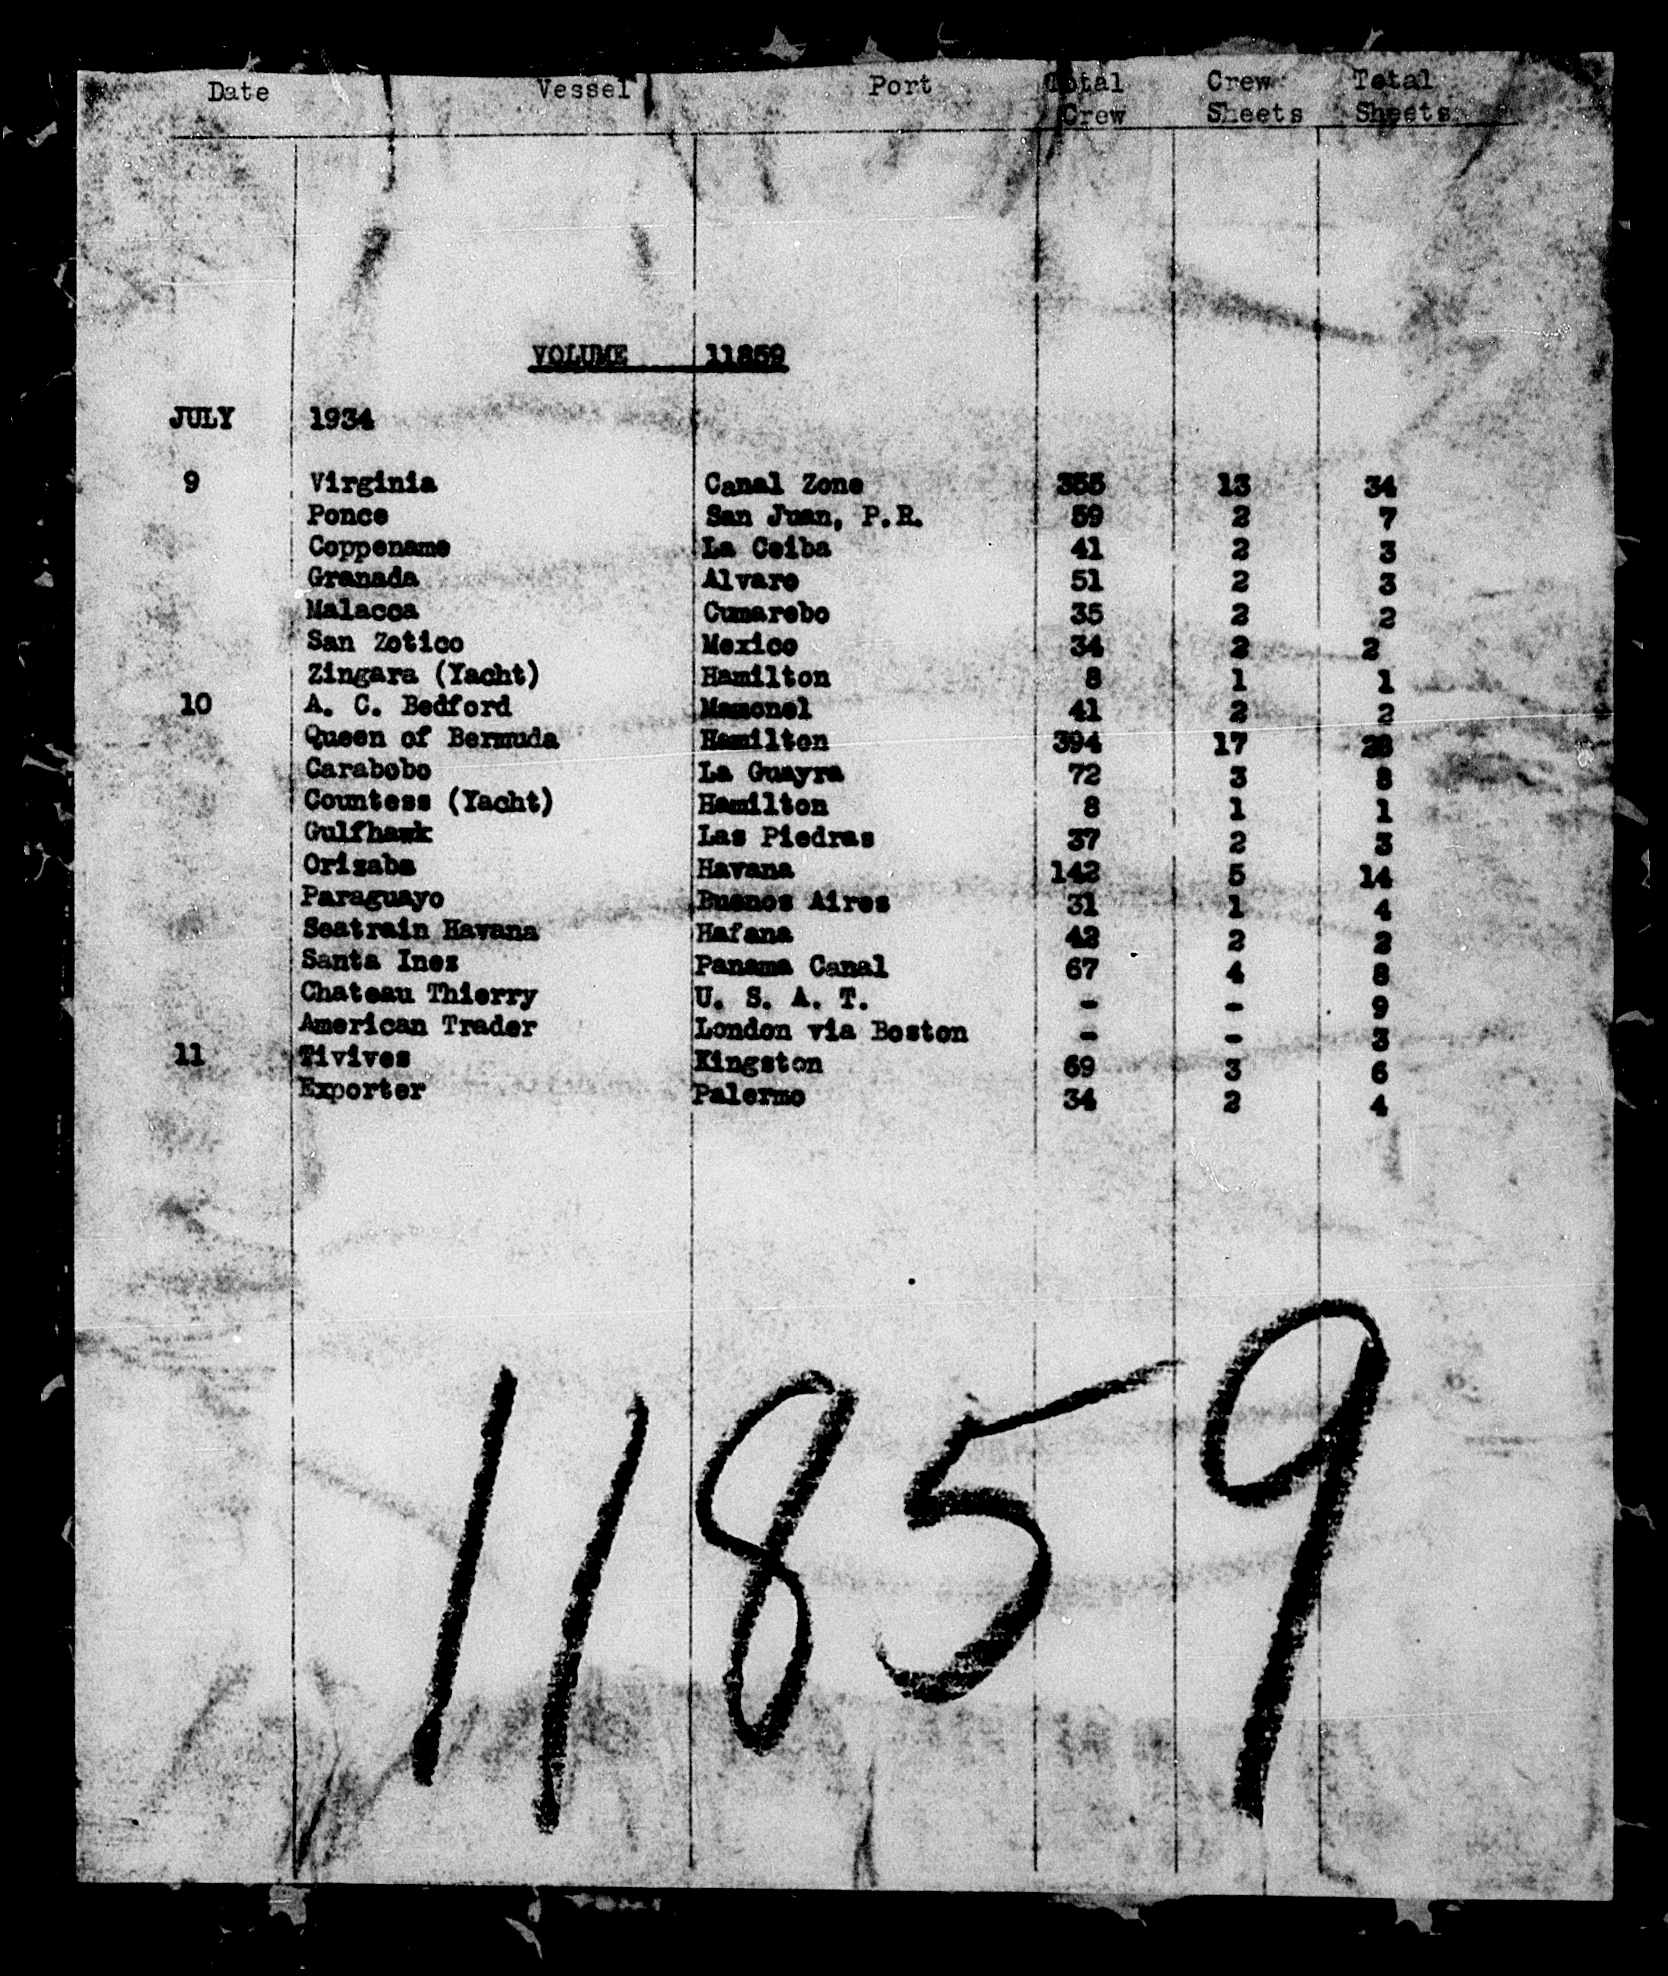 Date Vessel Port Total Crew Total
Crew Sheets Sheets
VOLUME 11859
JULY 1934
9 Virginia Canal Zone 355 13 34
Ponce San Juan, P.R. 59 2 7
Coppename La Ceiba 41 2 3
Granada Alvaro 51 2 3
Malacca Cumarebo 35 2 2
San Zotico Mexico 34 2 2
Zingara (Yacht) Hamilton 8 1 1
10 A. C. Bedford Mamonel 41 2 2
Queen of Bermuda Hamilton 394 17 28
Carabobo La Guayra 72 3 8
Countess (Yacht) Hamilton 8 1 1
Gulfhawk Las Piedras 37 2 3
Orizaba Havana 142 5 14
Paraguayo Buenos Aires 31 1 4
Seatrain Havana Hafana 42 2 2
Santa Inez Panama Canal 67 4 8
Chateau Thierry U. S. A. T. - - 9
American Trader London via Boston - - 3
11 Tivives Kingston 69 3 6
Exporter Palermo 34 2 4
11859